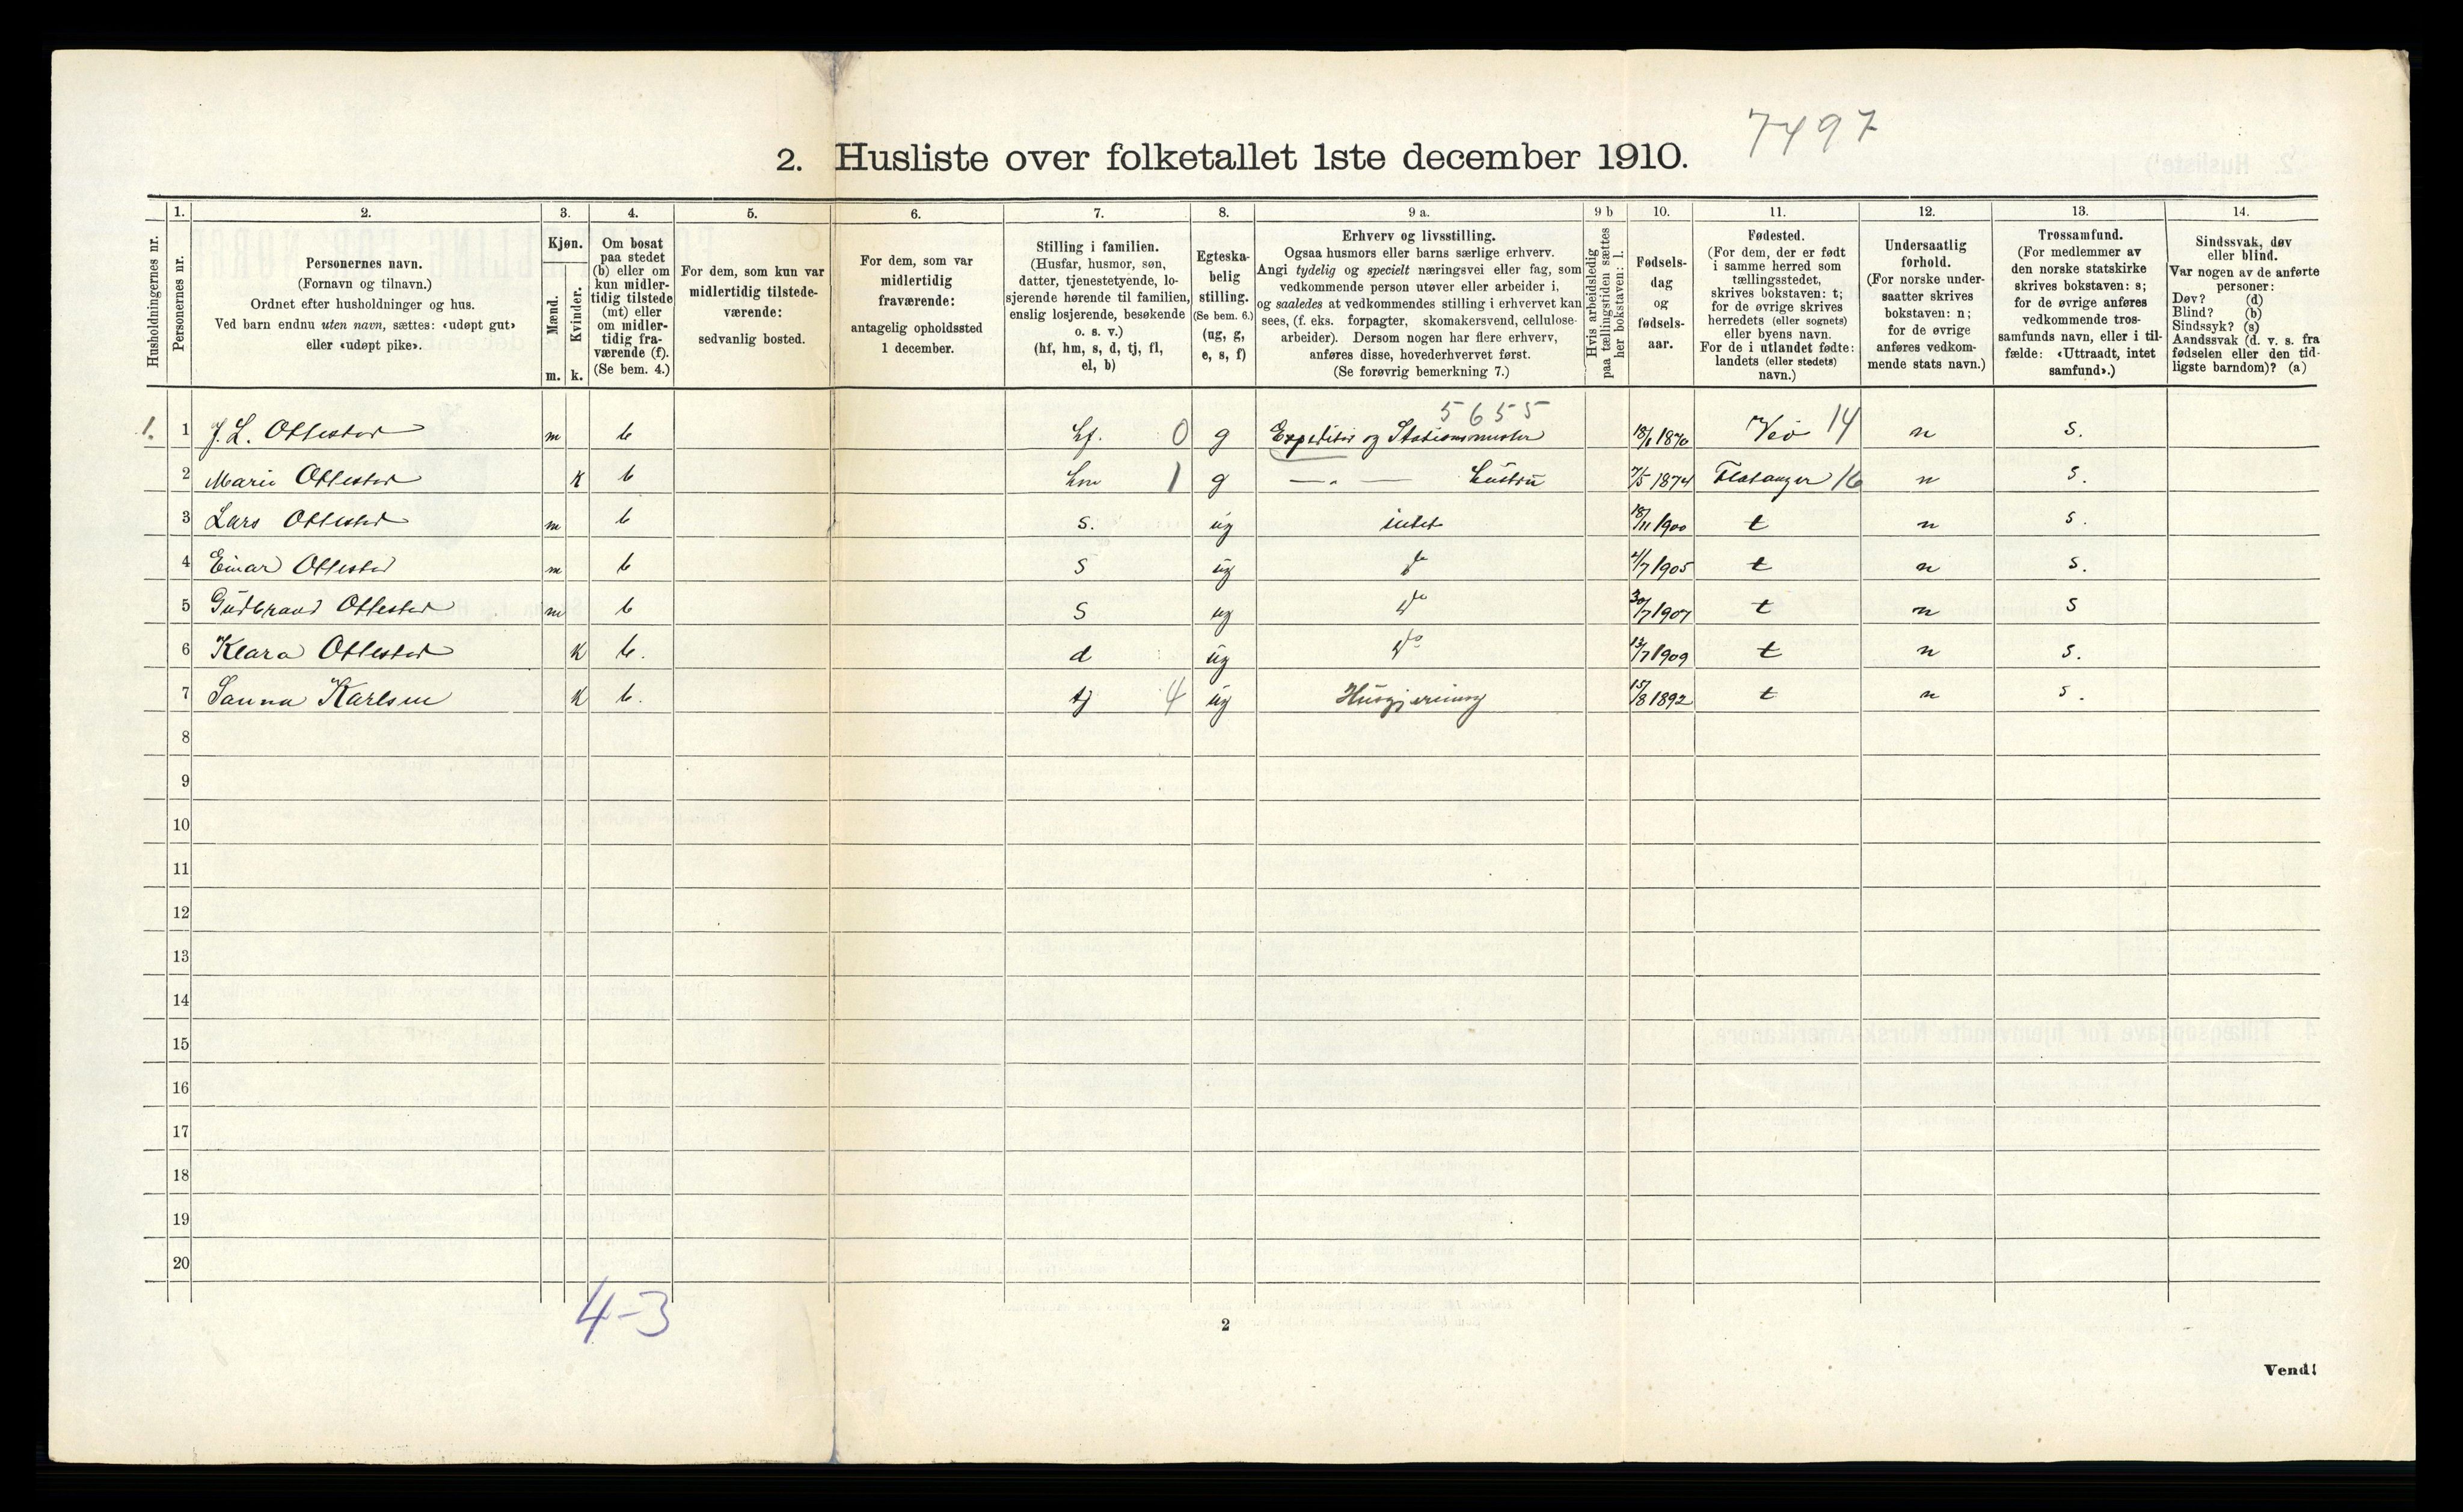 7497
2. Husliste over folketallet 1ste december 1910.
Husholdningernes nr.
1.
Personernes nr.
2.
Personernes navn.
(Fornavn og tilnavn.)
Ordnet efter husholdninger og hus.
Ved barn endnu uten navn, sættes: «udøpt gut»
eller «udøpt pike».
3.
Kjøn.
Mænd.
Kvinder.
m. k.
4.
Om bosat
paa stedet
(b) eller om
kun midler-
tidig tilstede
(mt) eller
om midler-
tidig fra-
værende (f).
(Se bem. 4.)
5.
For dem, som kun var
midlertidig tilstede-
værende:
sedvanlig bosted.
6.
For dem, som var
midlertidig
fraværende:
antagelig opholdssted
1 december.
7.
Stilling i familien.
(Husfar, husmor, søn,
datter, tjenestetyende, lo-
sjerende hørende til familien,
enslig losjerende, besøkende
o. s. v.)
(hf, hm, s, d, tj, fl,
el, b)
8.
Egteska-
belig
stilling.
(Se bem. 6.)
(ug, g,
e, s, f)
9 a.
Erhverv og livsstilling.
Ogsaa husmors eller barns særlige erhverv.
Angi tydelig og specielt næringsvei eller fag, som
vedkommende person utøver eller arbeider i,
og saaledes at vedkommendes stilling i erhvervet kan
sees, (f. eks. forpagter, skomakersvend, cellulose-
arbeider). Dersom nogen har flere erhverv,
anføres disse, hovederhvervet først.
(Se forøvrig bemerkning 7.)
9 b
Hvis arbeidsledig
paa tællingstiden sættes
her bokstaven: l.
10.
Fødsels-
dag
og
fødsels-
aar.
11.
Fødested.
(For dem, der er født
i samme herred som
tællingsstedet,
skrives bokstaven: t;
for de øvrige skrives
herredets (eller sognets)
eller byens navn.
For de i utlandet fødte:
landets (eller stedets)
navn.)
12.
Undersaatlig
forhold.
(For norske under-
saatter skrives
bokstaven: n;
for de øvrige
anføres vedkom-
mende stats navn.)
13.
Trossamfund.
(For medlemmer av
den norske statskirke
skrives bokstaven: s;
for de øvrige anføres
vedkommende tros-
samfunds navn, eller i til-
fælde: «Uttraadt, intet
samfund».)
14.
Sindssvak, døv
eller blind.
Var nogen av de anførte
personer:
Døv? (d)
Blind? (b)
Sindssyk? (s)
Aandssvak (d. v. s. fra
fødselen eller den tid-
ligste barndom)? (a)
5655
1. 1 J. L. Ottestad m b hf. 0 g Expeditør og Stationsmester 18/1 1870 Veö 14 n s.
2 Marie Ottestad k b hm 1 g —"— hustru 7/5 1874 Flatanger 16 n s.
3 Lars Ottestad m b s. ug intet 18/11 1900 t n s.
4 Einar Ottestad m b s ug do 4/7 1905 t n s.
5 Gudbrand Ottestad m b s ug do 30/7 1907 t n s
6 Klara Ottestad k b. d ug do 13/7 1909 t n s.
7 Sanna Karlsen k b. tj 4 ug Husgjerning 15/8 1892 t n s.
8
9
10
11
12
13
14
15
16
17
18
19
20
4-3
2
Vend!